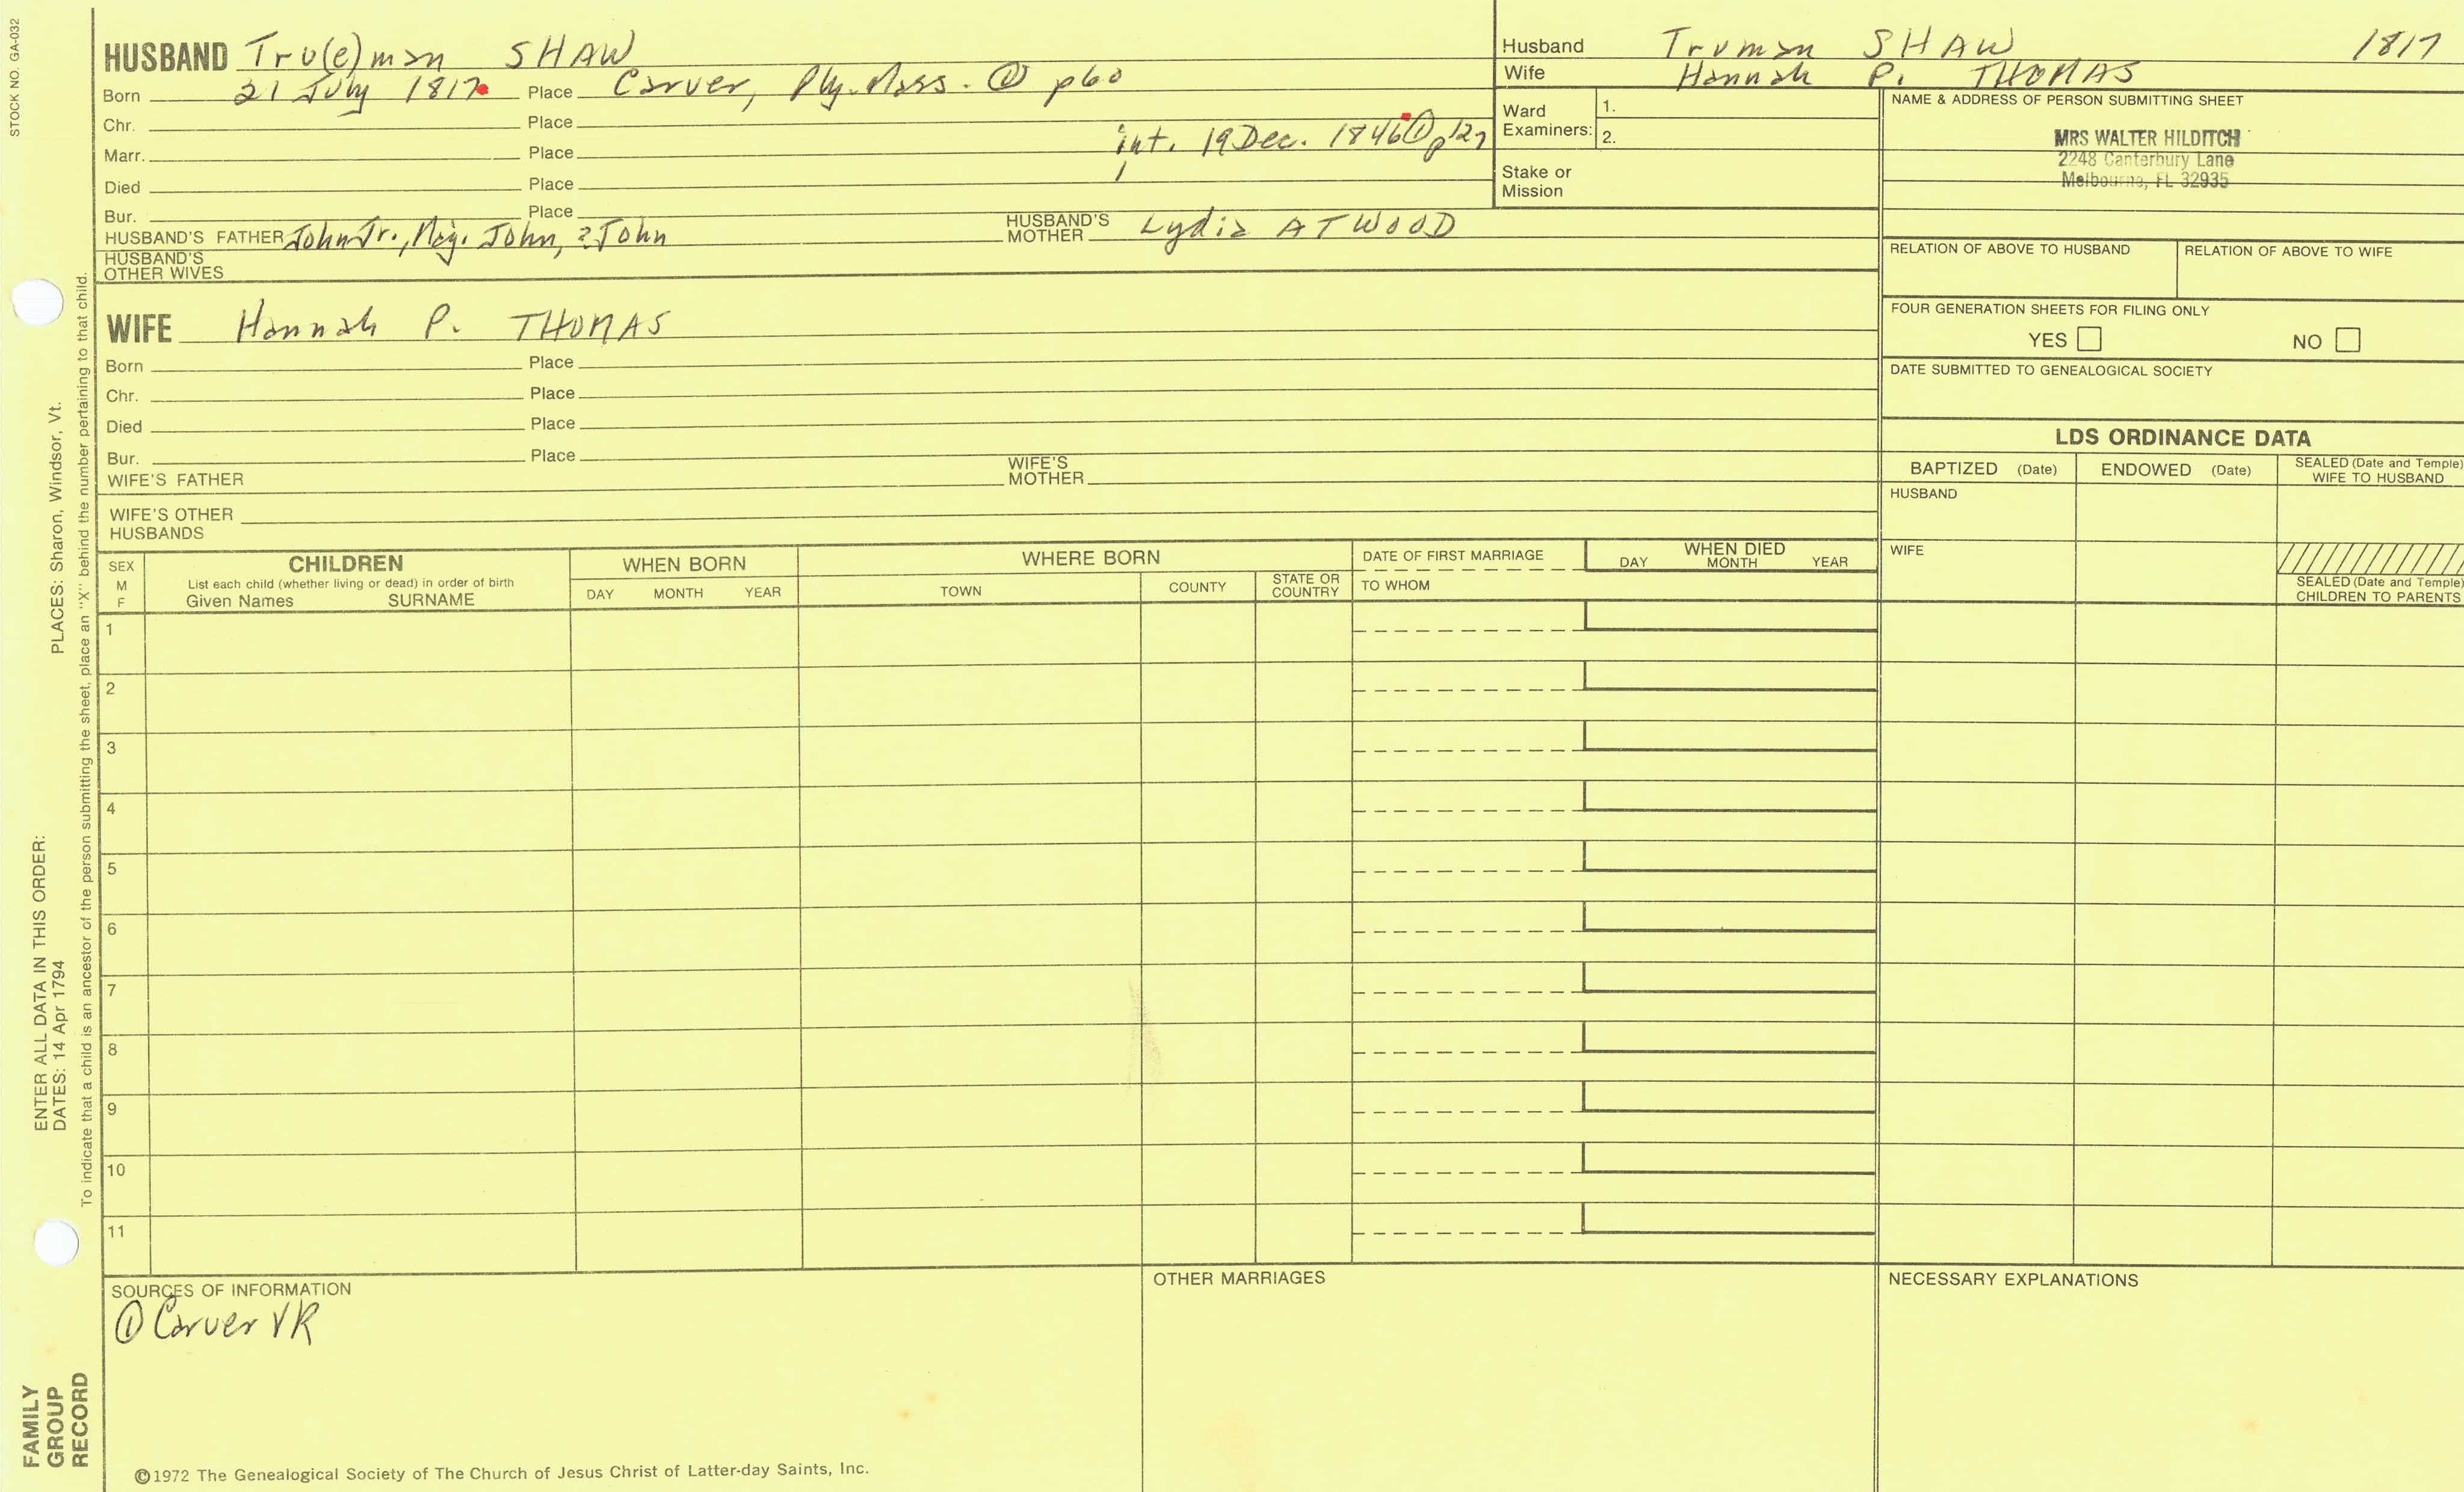 STOCK NO. GA-032
HUSBAND Tru(e)man SHAW
Born 21 July 1817 Place Carver, Ply. Mass. ① p60
Chr. Place
Marr. Place int. 19 Dec. 1846 ① p127
Died Place
Bur. Place
HUSBAND'S FATHER John Jr., Maj. John, 2 John HUSBAND'S MOTHER Lydia ATWOOD
HUSBAND'S OTHER WIVES
WIFE Hannah P. THOMAS
Born Place
Chr. Place
Died Place
Bur. Place
WIFE'S FATHER WIFE'S MOTHER
WIFE'S OTHER HUSBANDS
Husband Truman SHAW 1817
Wife Hannah P. THOMAS
Ward Examiners: 1.
2.
Stake or Mission
NAME & ADDRESS OF PERSON SUBMITTING SHEET
MRS WALTER HILDITCH
2248 Canterbury Lane
Melbourne, FL 32935
RELATION OF ABOVE TO HUSBAND RELATION OF ABOVE TO WIFE
FOUR GENERATION SHEETS FOR FILING ONLY
YES NO
DATE SUBMITTED TO GENEALOGICAL SOCIETY
LDS ORDINANCE DATA
BAPTIZED (Date) ENDOWED (Date) SEALED (Date and Temple) WIFE TO HUSBAND
HUSBAND
WIFE
SEALED (Date and Temple) CHILDREN TO PARENTS
SEX M F
CHILDREN
List each child (whether living or dead) in order of birth
Given Names SURNAME
WHEN BORN
DAY MONTH YEAR
WHERE BORN
TOWN COUNTY STATE OR COUNTRY
DATE OF FIRST MARRIAGE
TO WHOM
WHEN DIED
DAY MONTH YEAR
1
2
3
4
5
6
7
8
9
10
11
SOURCES OF INFORMATION
① Carver VR
OTHER MARRIAGES
NECESSARY EXPLANATIONS
©1972 The Genealogical Society of The Church of Jesus Christ of Latter-day Saints, Inc.
ENTER ALL DATA IN THIS ORDER:
DATES: 14 Apr 1794 PLACES: Sharon, Windsor, Vt.
To indicate that a child is an ancestor of the person submitting the sheet, place an "X" behind the number pertaining to that child.
FAMILY
GROUP
RECORD